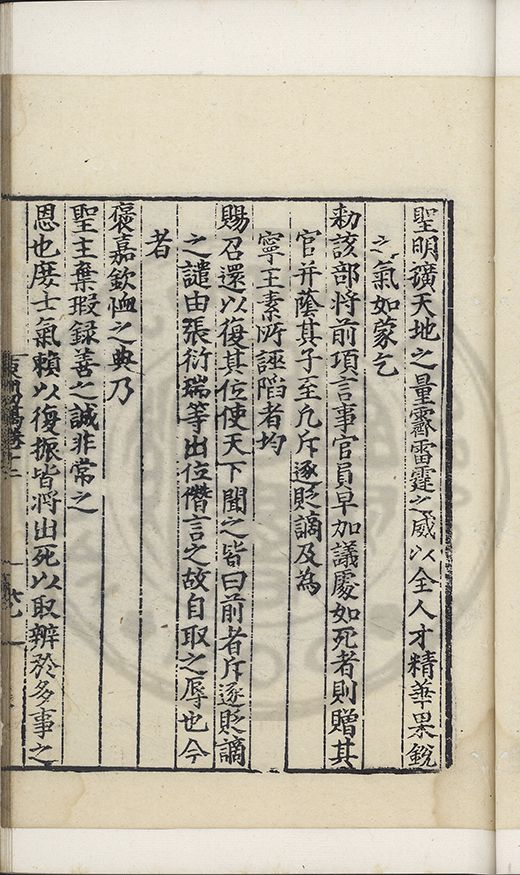 聖明擴天地之量霽雷霆之威以全人才精華果銳
之氣如蒙乞
勑該部將前項言事官員早加議處如死者則贈其
官并蔭其子至凡斥逐貶謫及為
寧王素所誣陷者均
賜召還以復其位使天下聞之皆曰前者斥逐貶謫
之譴由張衍瑞等出位僭言之故自取之辱也今
者
褒嘉欽恤之典乃
聖主棄瑕録善之誠非常之
恩也庶士氣賴以復振皆將出死以取辦於多事之